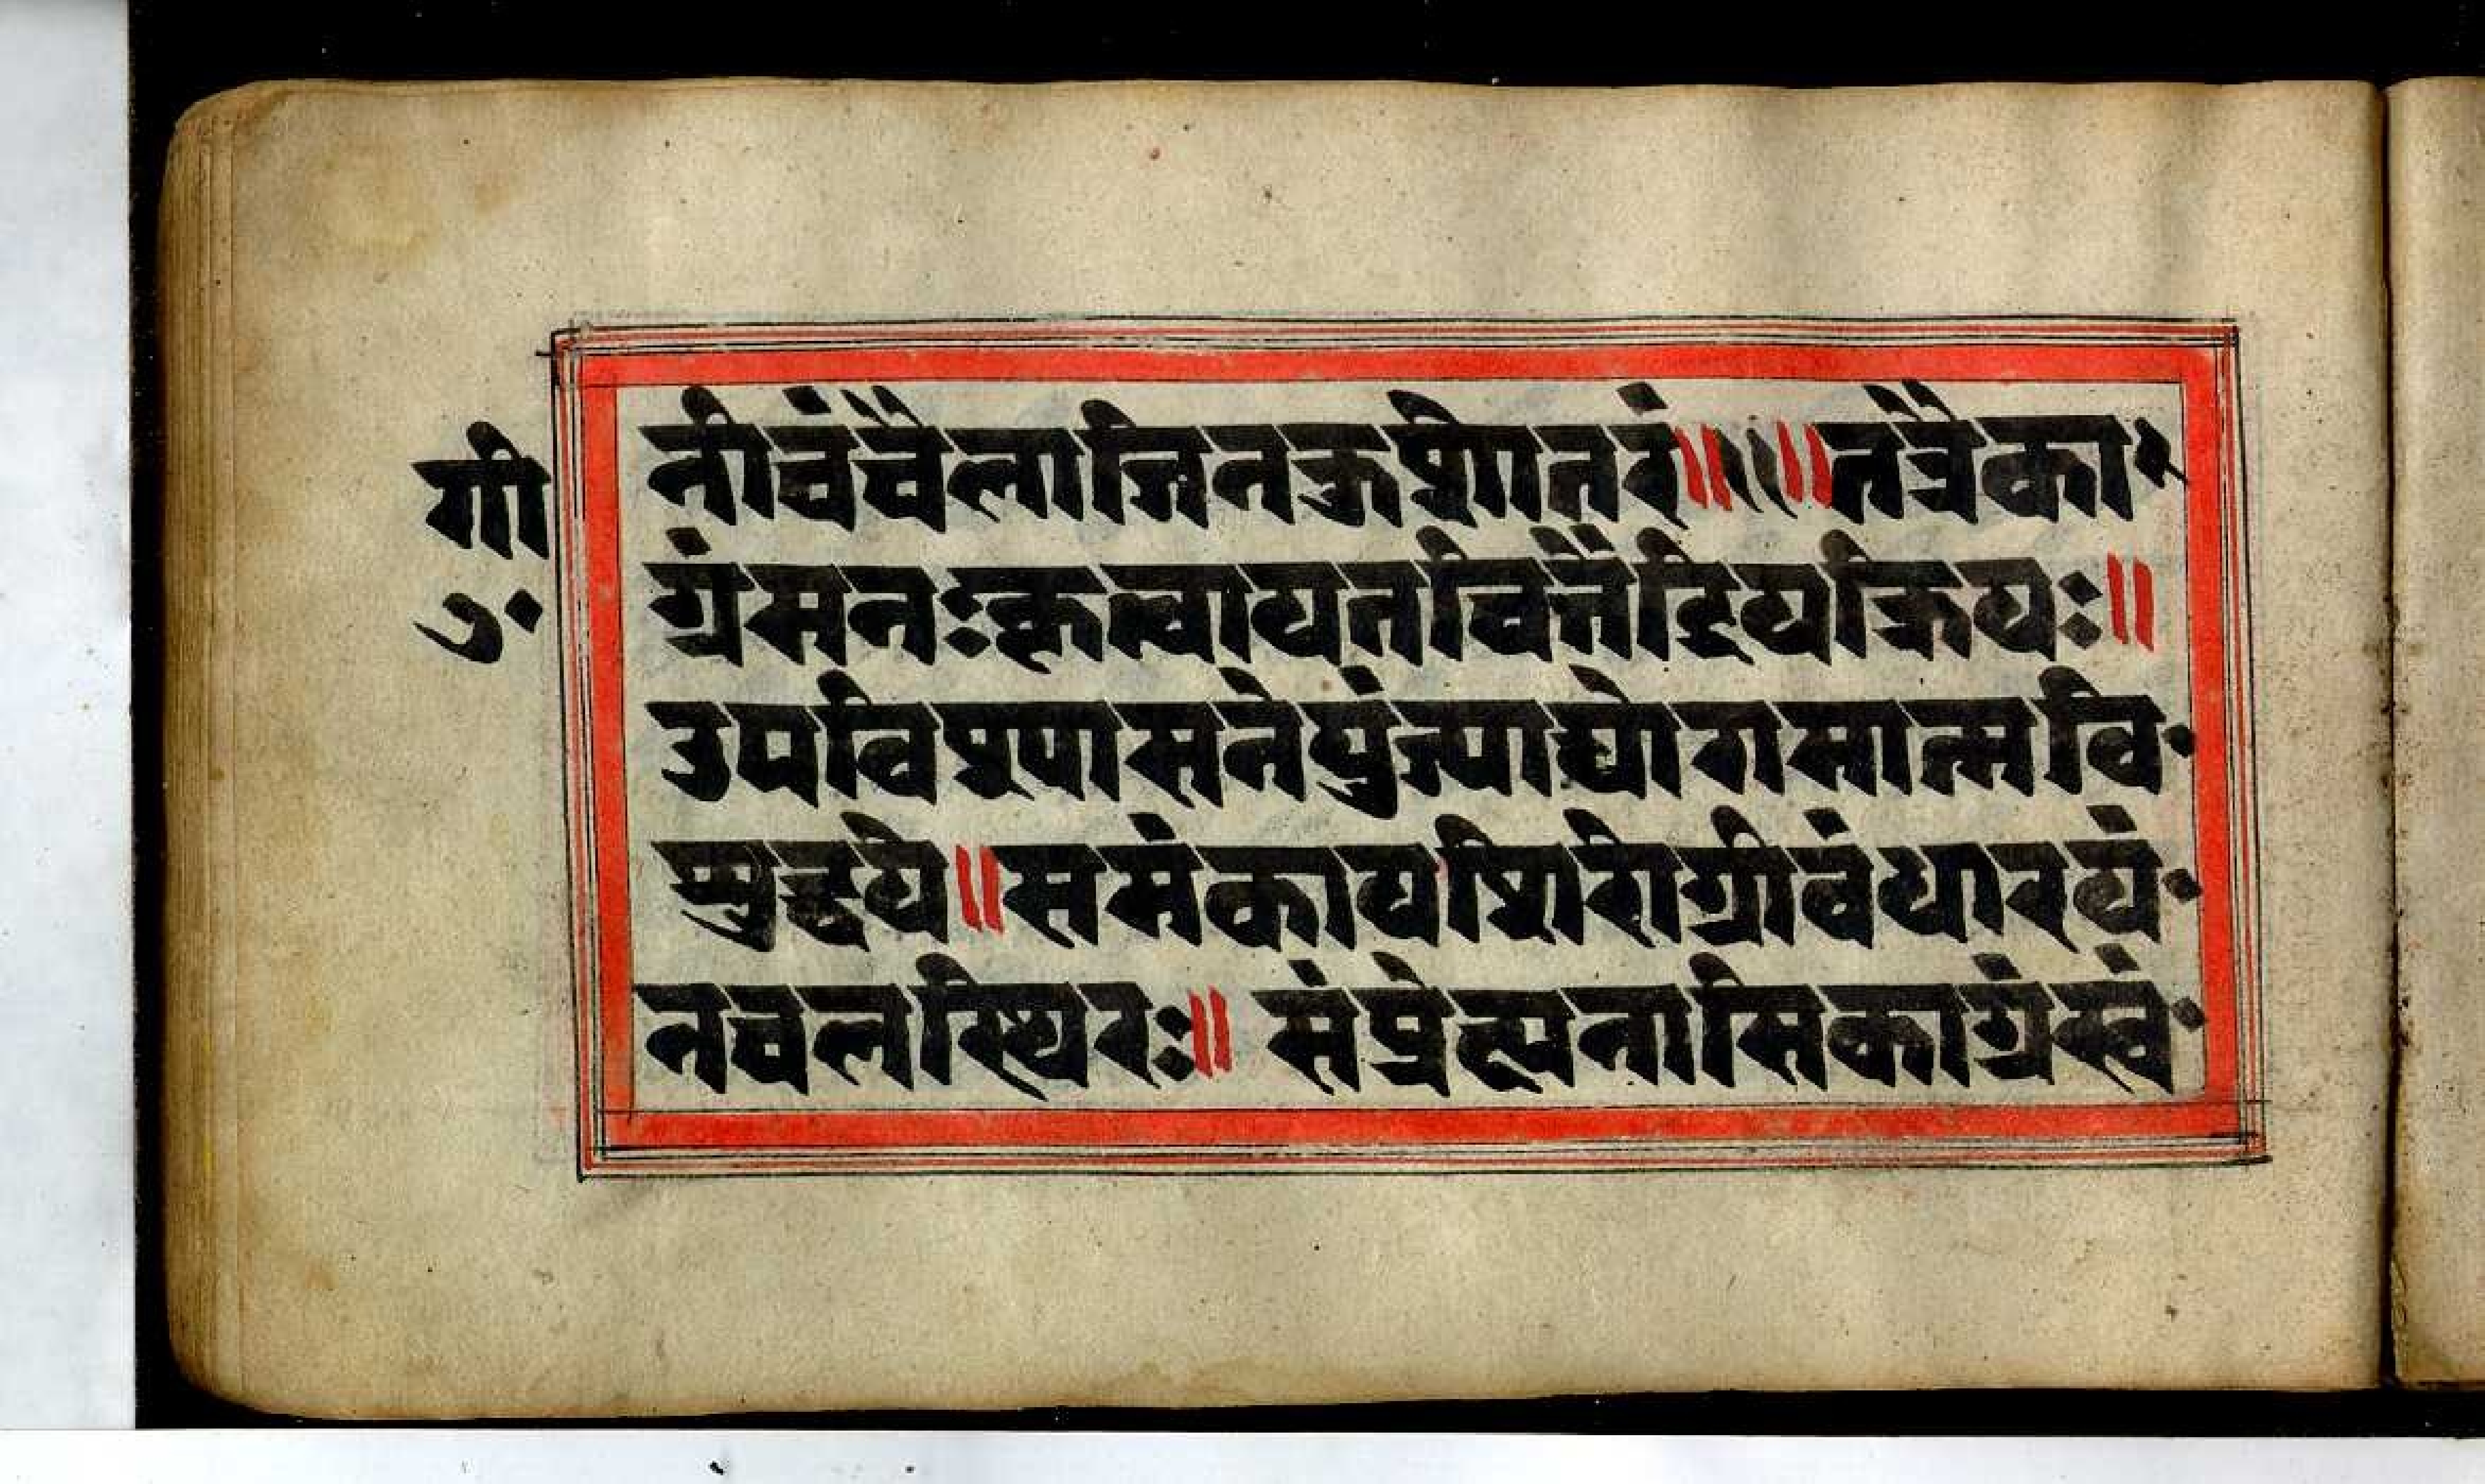 गी
७०
नीचंचैलाजिनकुशोतरं॥॥तत्रैका
ग्रंमनःकृत्वायतचित्तेंद्रियक्रियः॥
उपविश्यासनेयुंज्याद्योगमात्मवि
शुद्धये॥समंकायशिरोग्रीवंधारयं
नचलस्थिरः॥संप्रेक्ष्यनासिकाग्रंस्वं